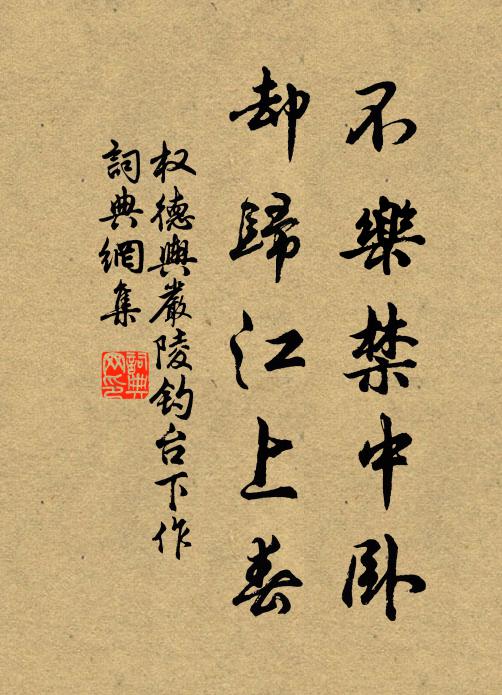 不樂禁中卧
却歸江上春
权德輿嚴陵钓台下作
詞典網集
詞典
网印